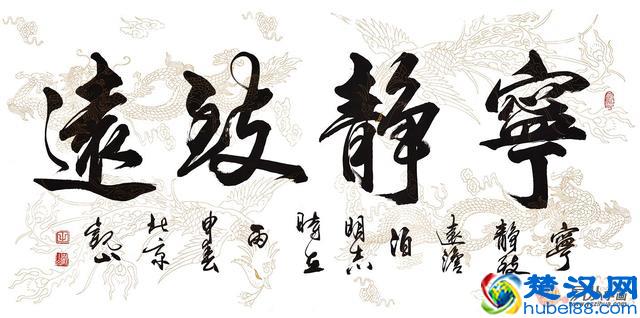 寧静致遠
寧
静致
遠澹
泊
明志
時在
丙
申春
北京
楚汉网
hubei88.com